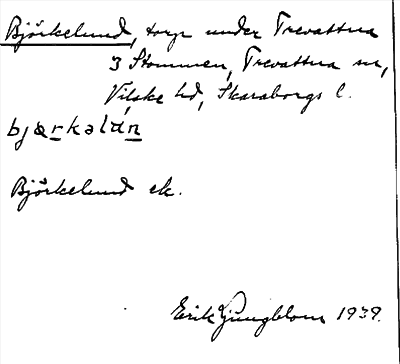 Björkelund, torp under Trevattna
3 Stommen, Trevattna sn,
Vilske hd, Skaraborgs l.
bjærkəlún
Björkelund ek.
Erik Ljungblom 1939.